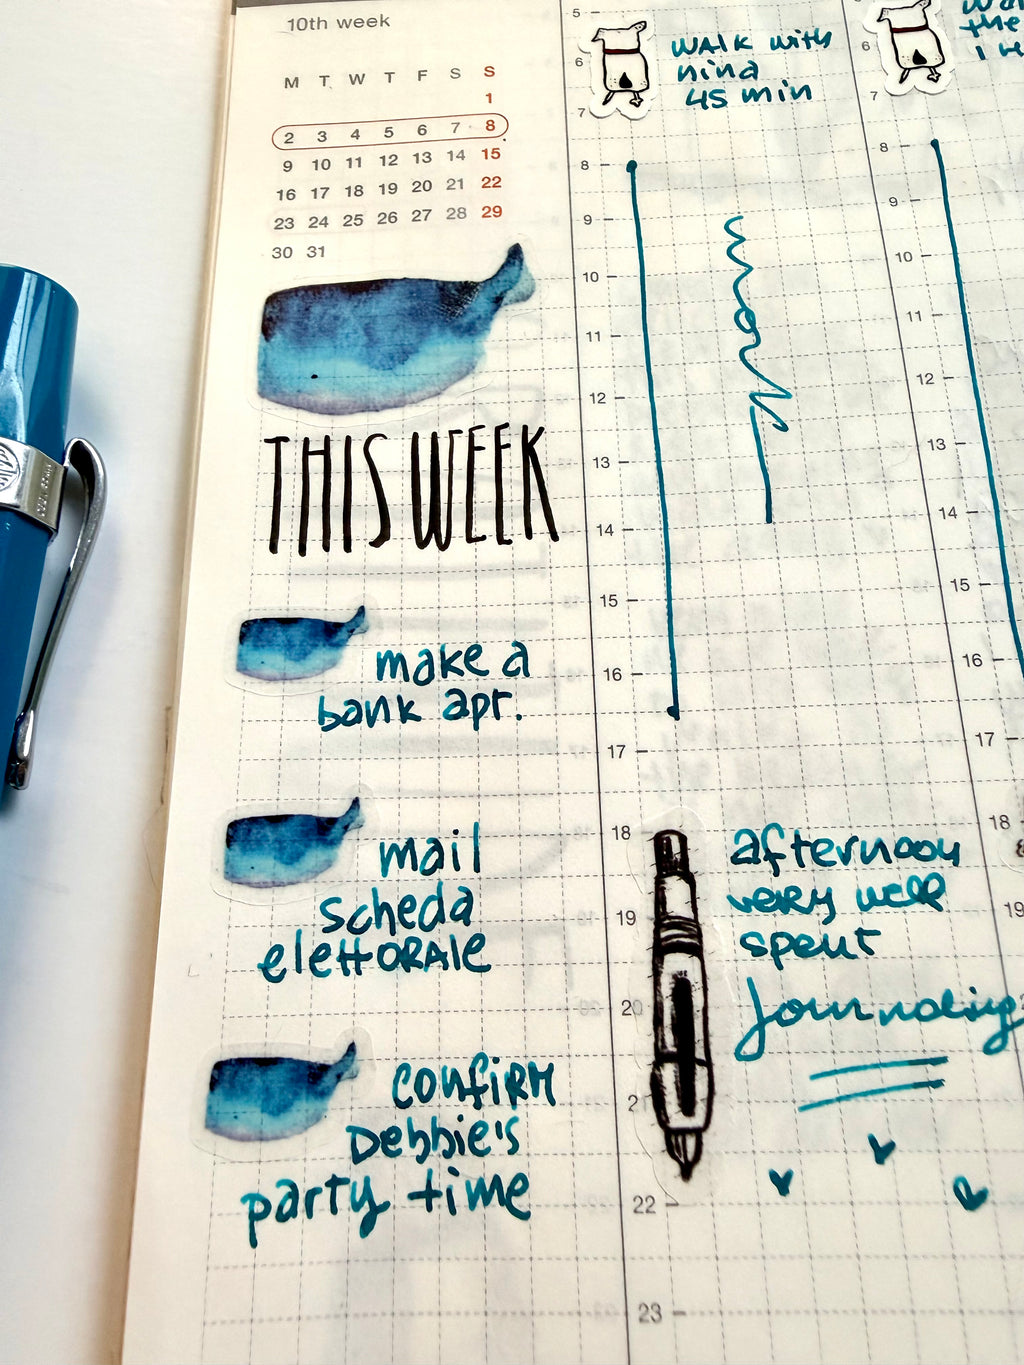 10th week
M T W T F S S
1
2 3 4 5 6 7 8
9 10 11 12 13 14 15
16 17 18 19 20 21 22
23 24 25 26 27 28 29
30 31
THIS WEEK
make a
bank apr.
mail
scheda
elettorale
confirm
Debbie's
party time
5
6
7
8
9
10
11
12
13
14
15
16
17
18
19
20
21
22
23
walk with
nina
45 min
work
afternoon
very well
spent
Journaling
6
7
8
9
10
11
12
13
14
15
16
17
18
19
the